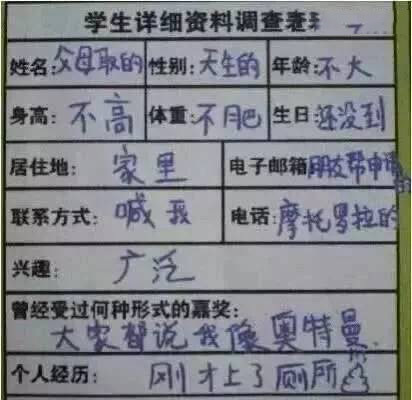 学生详细资料调查表
姓名:父母取的 性别:天生的 年龄:不大
身高:不高 体重:不肥 生日:还没到
居住地:家里 电子邮箱朋友帮申请的
联系方式:喊我 电话:摩托罗拉的
兴趣:广泛
曾经受过何种形式的嘉奖:
大家都说我像奥特曼
个人经历:刚才上了厕所